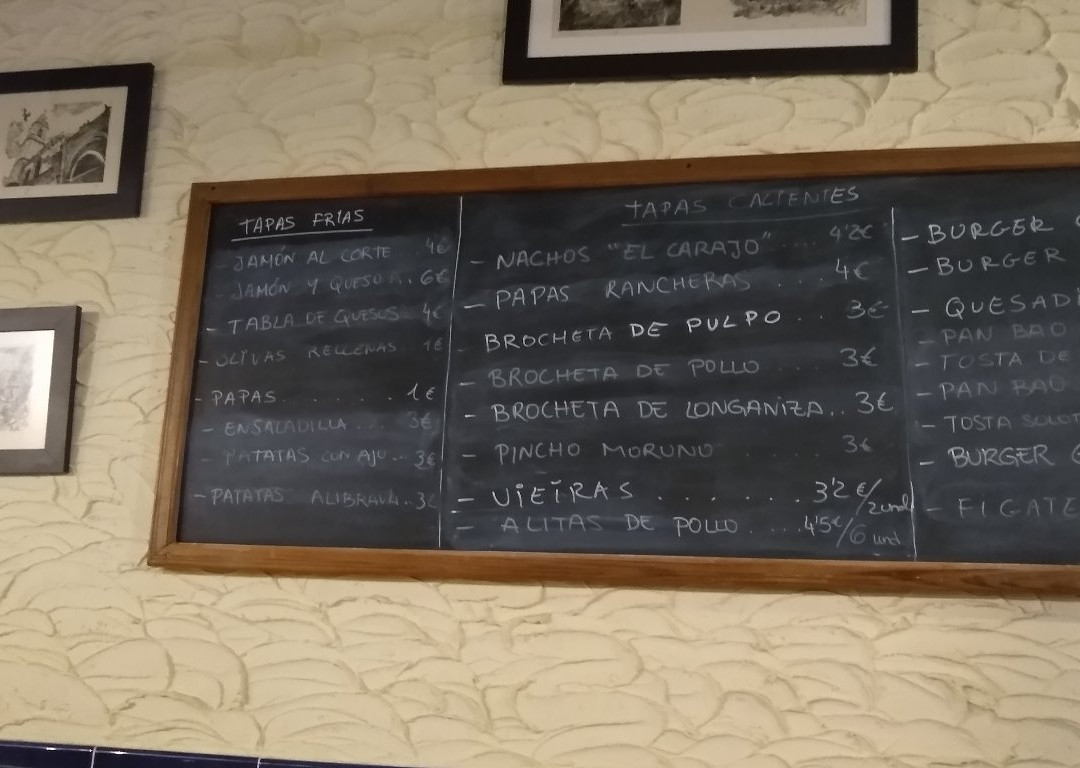 TAPAS FRIAS
- JAMÓN AL CORTE 4€
- JAMÓN Y QUESO ... 6€
- TABLA DE QUESOS 4€
- OLIVAS RELLENAS 1€
- PAPAS ........ 1€
- ENSALADILLA ... 3€
- PATATAS CON AJO .. 3€
- PATATAS ALIBRAVA .. 3€
TAPAS CALIENTES
- NACHOS "EL CARAJO" .... 4'2€
- PAPAS RANCHERAS .... 4€
- BROCHETA DE PULPO .. 3€
- BROCHETA DE POLLO ... 3€
- BROCHETA DE LONGANIZA .. 3€
- PINCHO MORUNO ..... 3€
- VIEIRAS ....... 3'2€/2und
- ALITAS DE POLLO ..... 4'5€/6 und
- BURGER
- BURGER
- QUESADI
- PAN BAO
- TOSTA DE
- PAN BAO
- TOSTA SOLO
- BURGER
- FIGATE